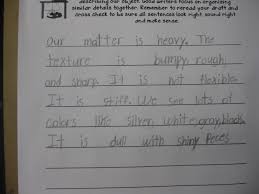 describing our object. Good writers focus on organizing
similar details together. Remember to reread your draft and
cross check to be sure all sentences look right, sound right
and make sense.
Our matter is heavy. The
texture is bumpy, rough,
and sharp. It is not flexible.
It is stiff. We see lots of
colors like silver, white, gray, black.
It is dull with shiny Peces